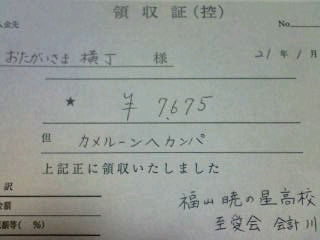 領収証(控)
入金先 No.
おたがいさま 横丁 様 21年1月
★ ¥7,675
但 カメルーンへカンパ
上記正に領収いたしました
訳
金額
税額等( %)
福山暁の星高校
至愛会 会計 川